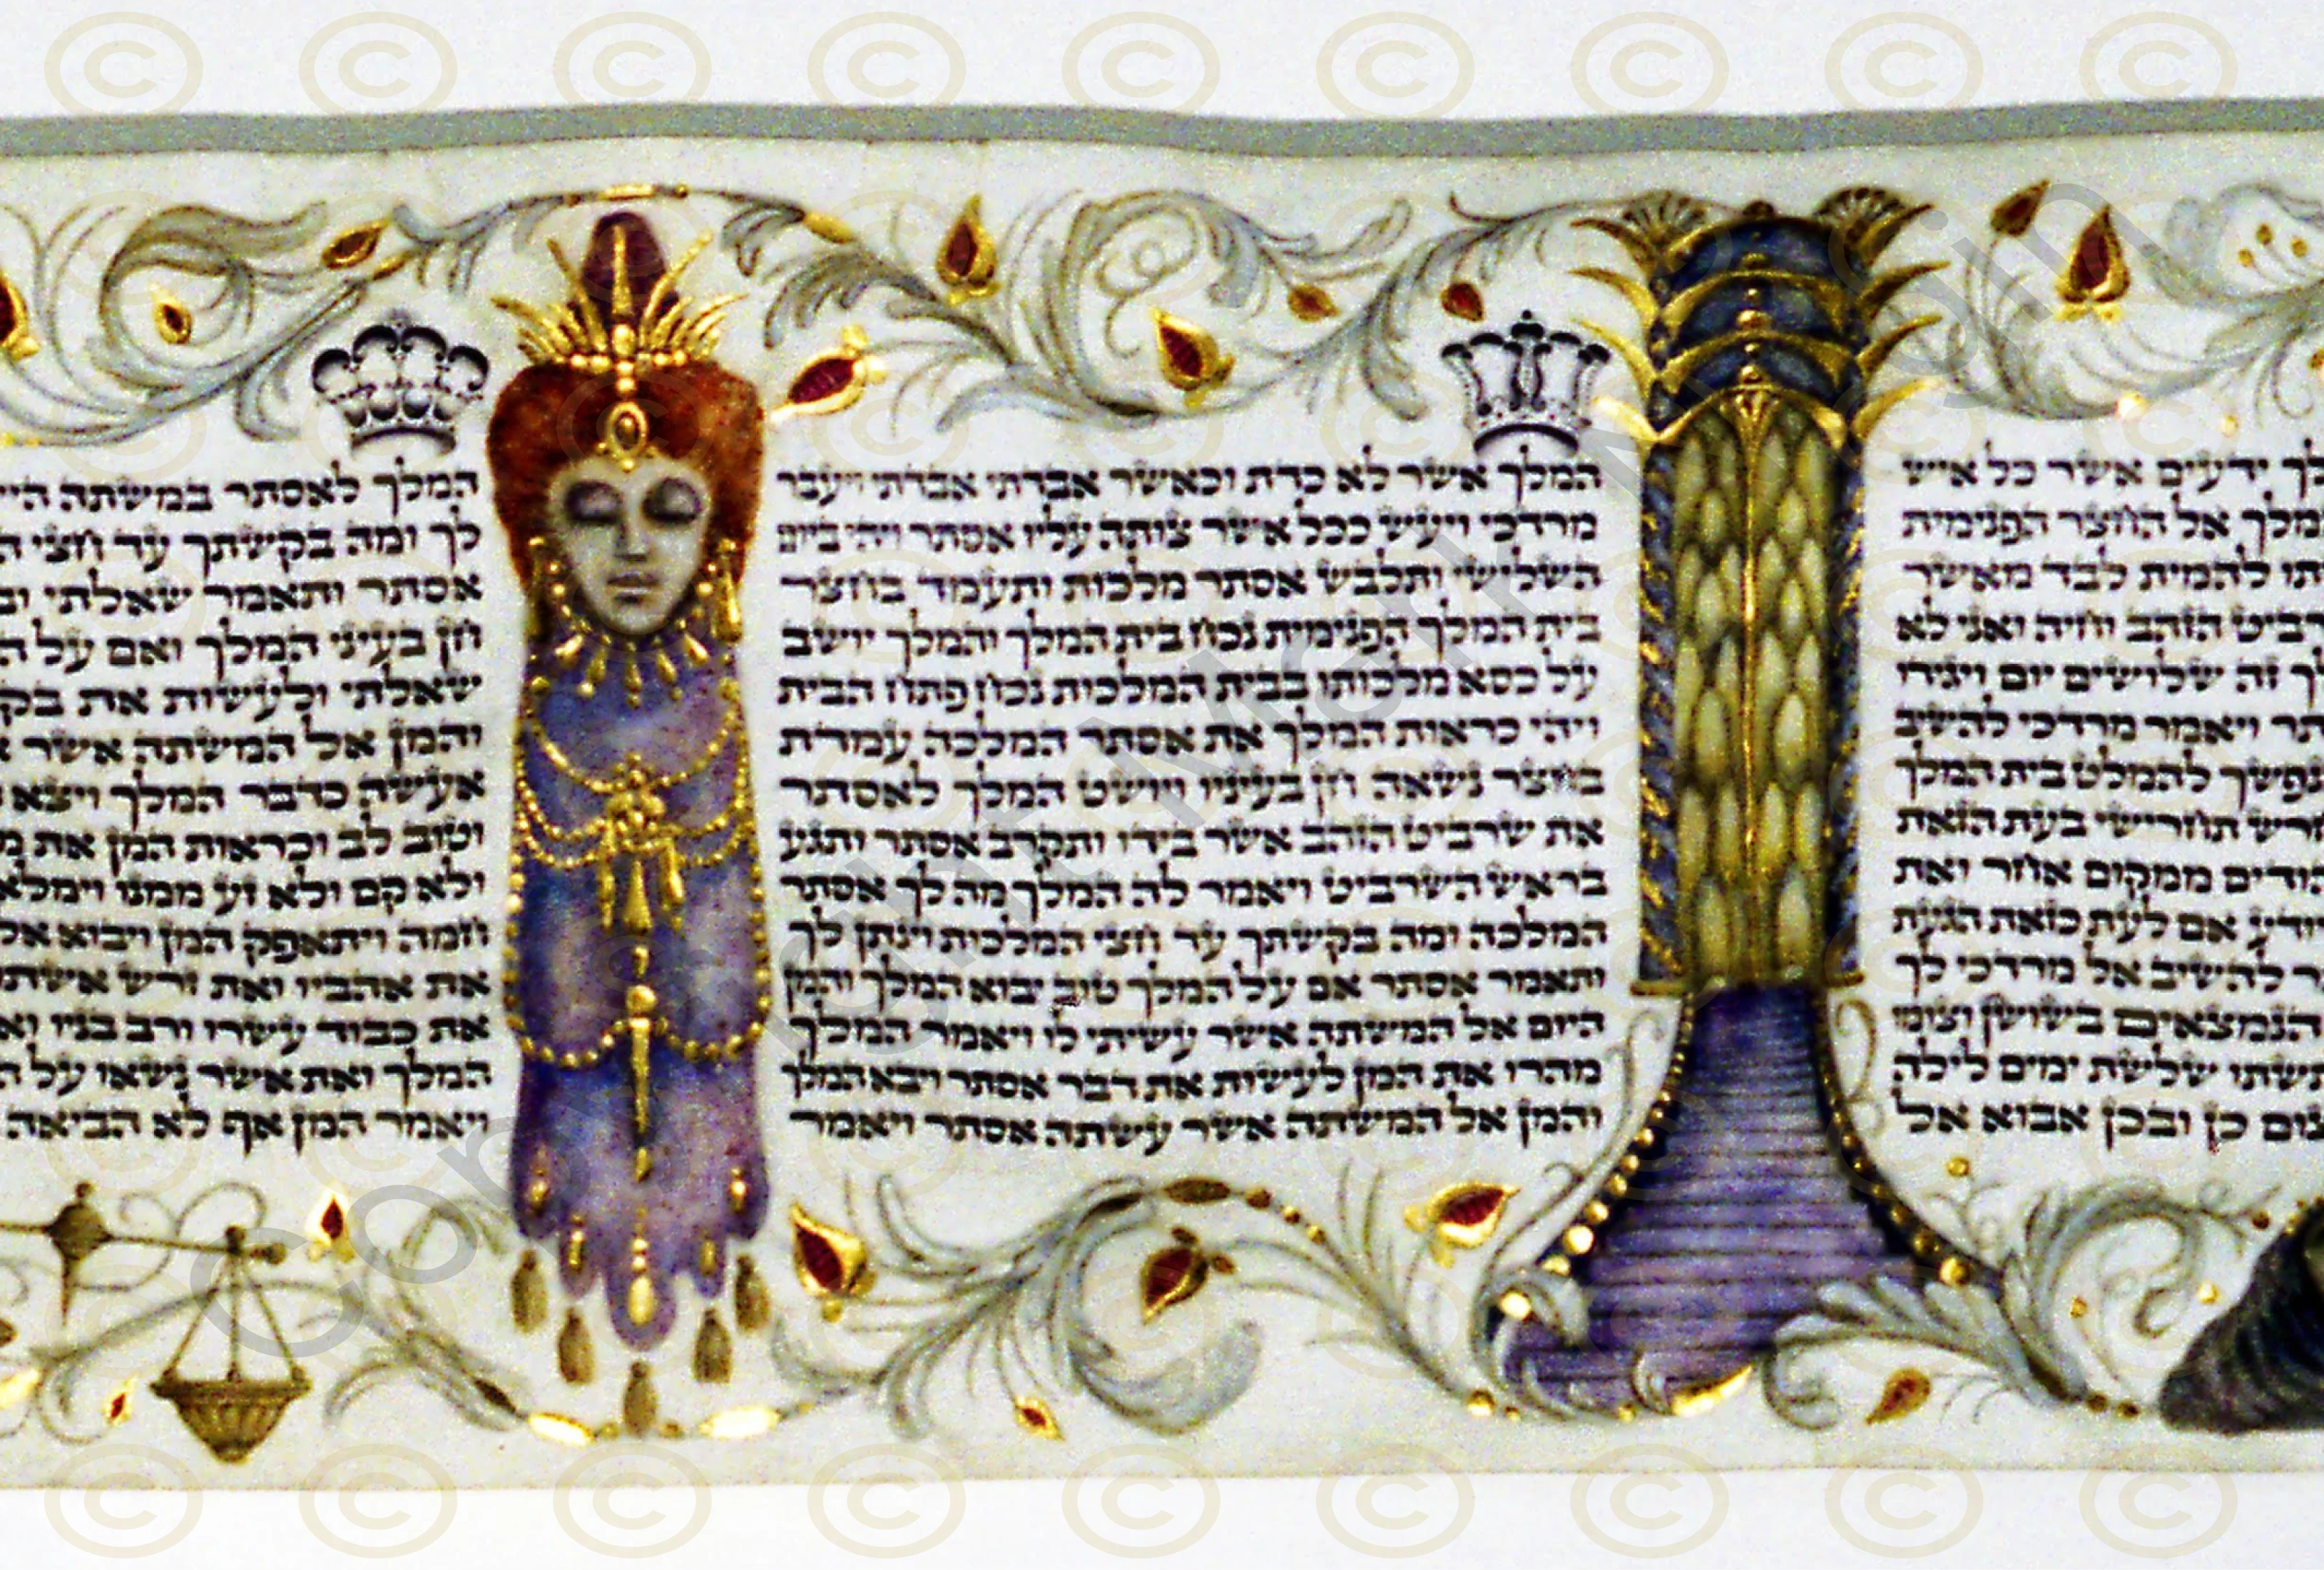 ידעים אשר כל איש
אל החצר הפנימית
להמית לבד מאשר
הזהב וחיה ואני לא
זה שלושים יום ויגידו
ויאמר מרדכי להשיב
נפשך להמלט בית המלך
תחרישי בעת הזאת
ממקום אחר ואת
אם לעת כזאת הגעת
להשיב אל מרדכי לך
הנמצאים בשושן וצומו
תשתו שלשת ימים לילה
כן ובכן אבוא אל
המלך אשר לא כדת וכאשר אבדתי אבדתי ויעבר
מרדכי ויעש ככל אשר צותה עליו אסתר ויהי ביום
השלישי ותלבש אסתר מלכות ותעמד בחצר
בית המלך הפנימית נכח בית המלך והמלך יושב
על כסא מלכותו בבית המלכות נכח פתח הבית
ויהי כראות המלך את אסתר המלכה עמדת
בחצר נשאה חן בעיניו ויושט המלך לאסתר
את שרביט הזהב אשר בידו ותקרב אסתר ותגע
בראש השרביט ויאמר לה המלך מה לך אסתר
המלכה ומה בקשתך עד חצי המלכות וינתן לך
ותאמר אסתר אם על המלך טוב יבוא המלך והמן
היום אל המשתה אשר עשיתי לו ויאמר המלך
מהרו את המן לעשות את דבר אסתר ויבא המלך
והמן אל המשתה אשר עשתה אסתר ויאמר
המלך לאסתר במשתה היי
לך ומה בקשתך עד חצי
אסתר ותאמר שאלתי
חן בעיני המלך ואם על
שאלתי ולעשות את
והמן אל המשתה אשר
אעשה כדבר המלך ויצא
וטוב לב וכראות המן את
ולא קם ולא זע ממנו וימלא
חמה ויתאפק המן ויבוא אל
את אהביו ואת זרש
את כבוד עשרו ורב בניו
המלך ואת אשר נשאו על
ויאמר המן אף לא הביאה
Copyright